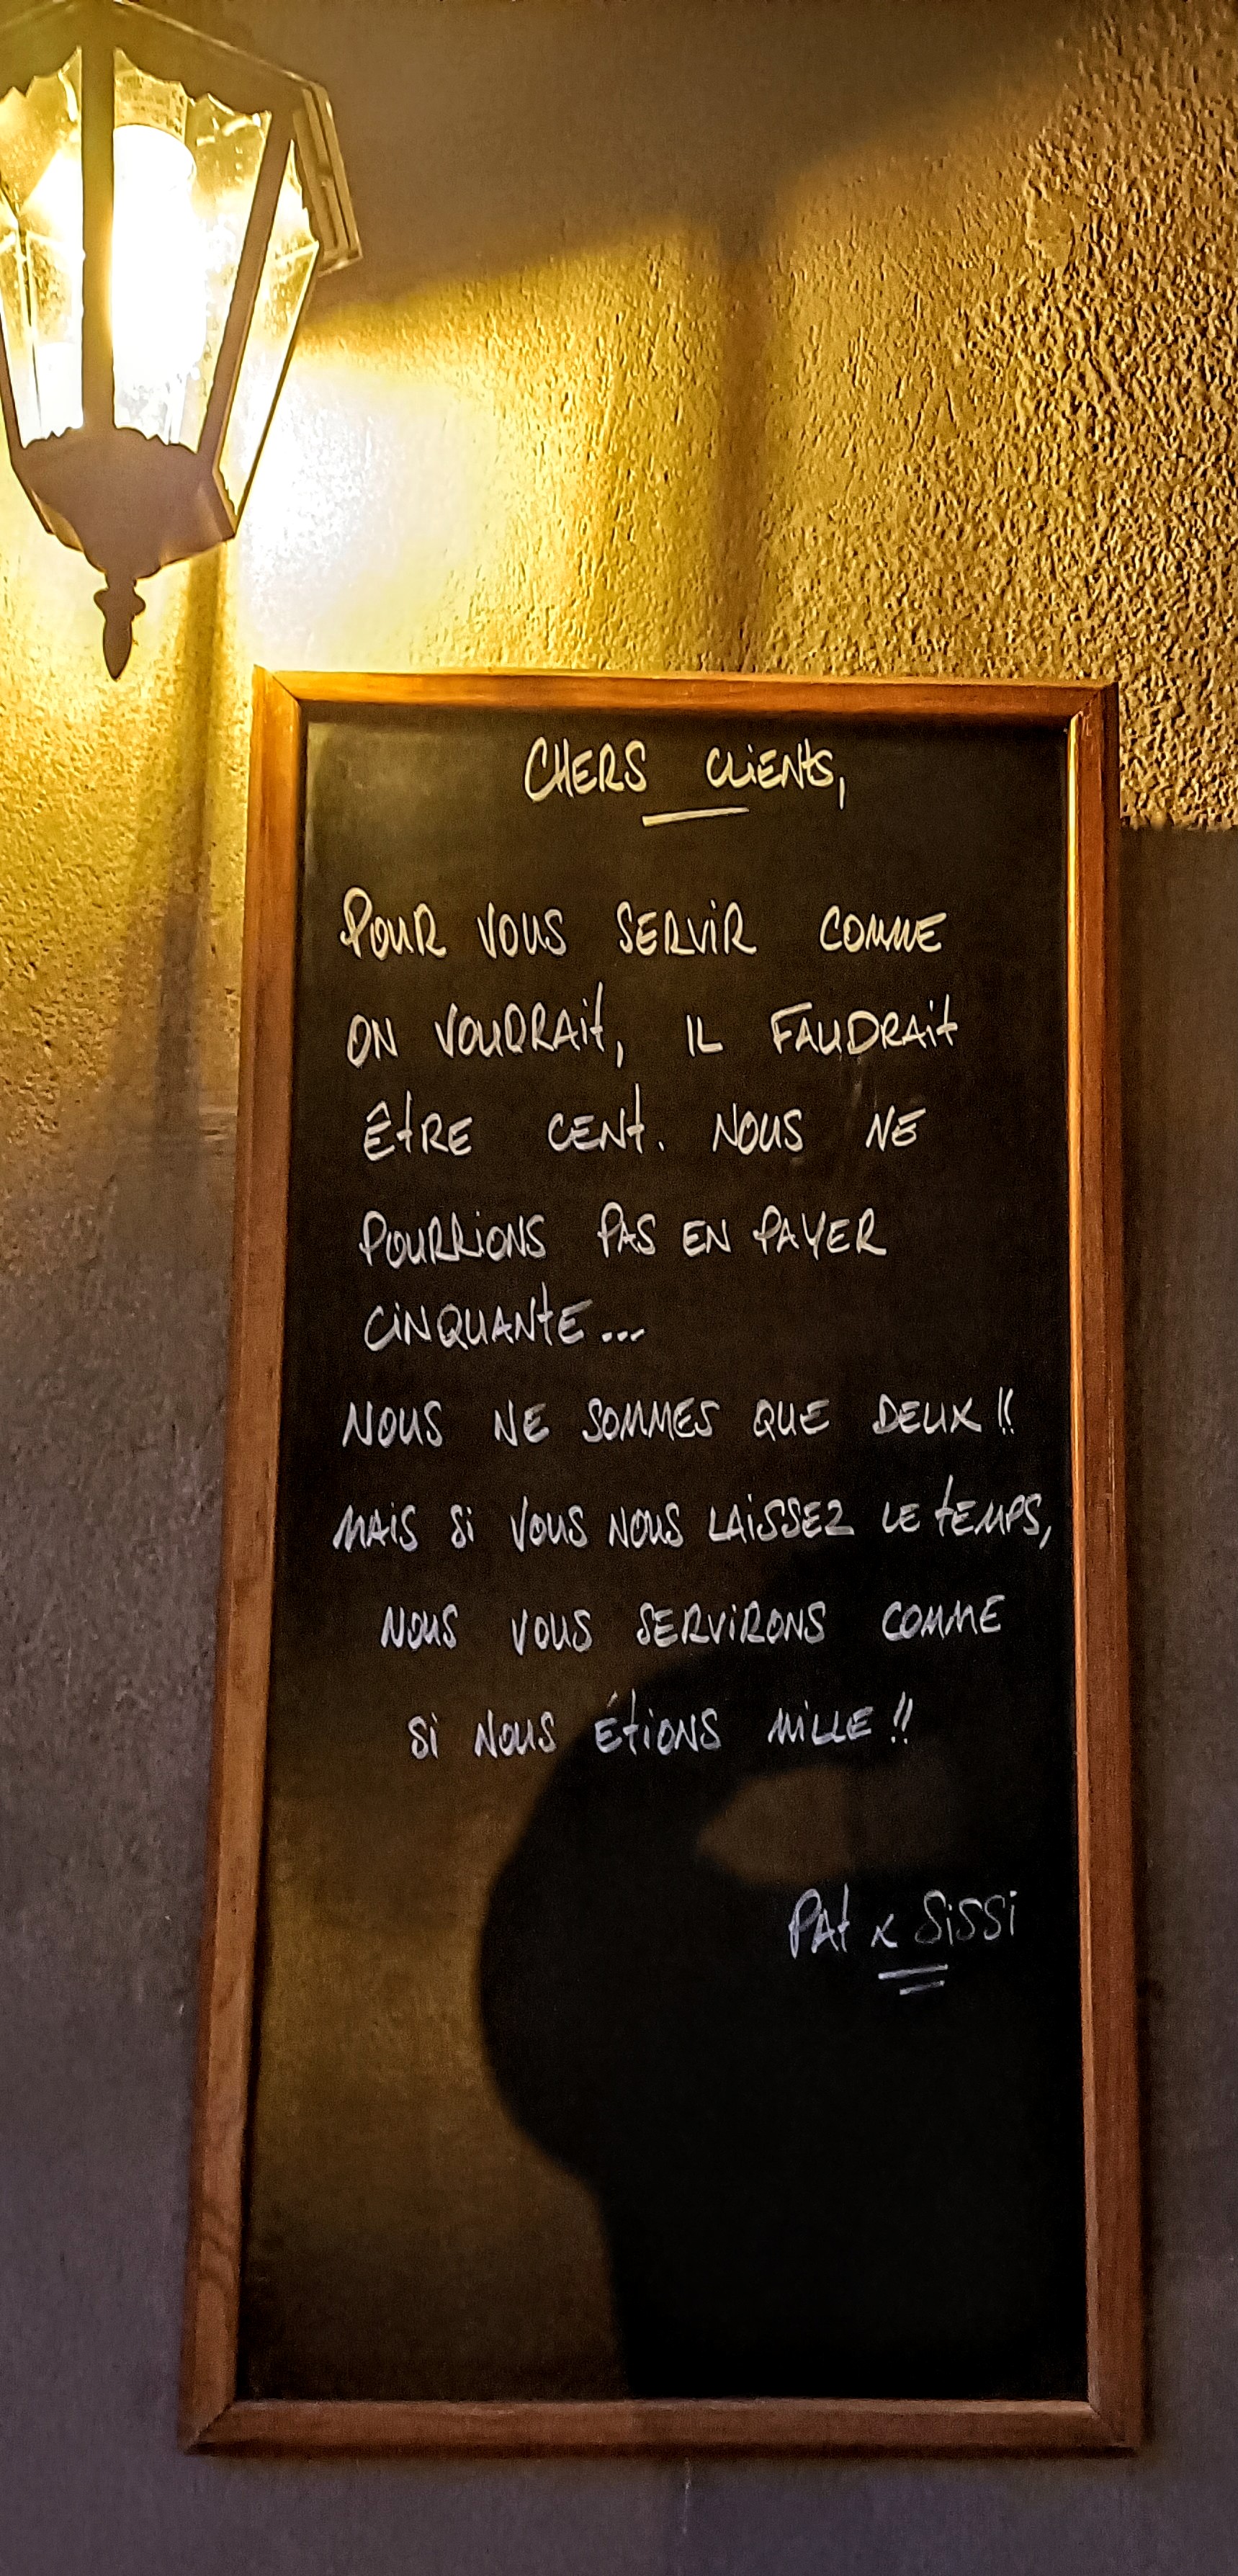 CHERS CLiENts,
POUR VOUS SERViR COMME
ON VOUDRAit, IL FAUDRAit
ÊtRE CENt. NOUS NE
POURRiONS PAS EN PAYER
CiNQUANtE...
NOUS NE SOMMES QUE DEUX !!
MAiS Si VOUS NOUS LAiSSEZ LE tEMPS,
NOUS VOUS SERViRONS COMME
Si NOUS ÉtiONS MiLLE !!
PAt & SiSSi